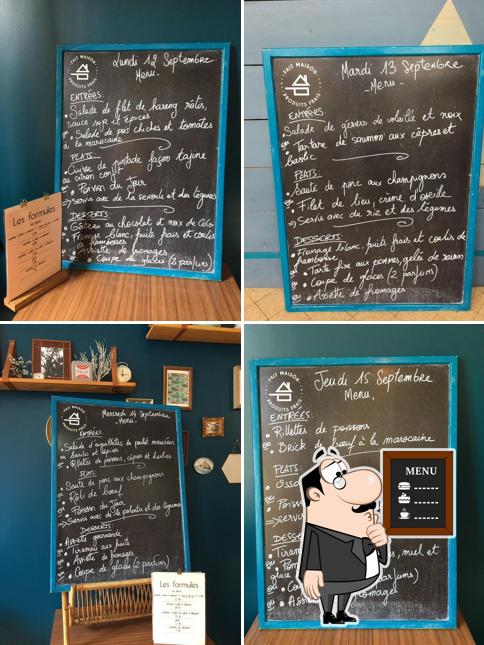 FAIT MAISON
PRODUITS FRAIS
Lundi 12 Septembre
Menu.
ENTRÉES:
Salade de filet de hareng rôtis,
sauce soja et épices
ou Salade de pois chiches et tomates
à la marocaine
PLATS:
Cuisse de pintade façon tajine
au citron confit
ou Poisson du Jour
servis avec de la semoule et des légumes
DESSERTS:
Gâteau au chocolat et noix de Coco
Fromage blanc, fruits frais et coulis
de framboises
ou Assiette de fromages
ou Coupe de glaces (2 parfums)
Les formules
FAIT MAISON
PRODUITS FRAIS
Mardi 13 Septembre
-Menu-
ENTRÉES
Salade de gésiers de volaille et noix
ou Tartare de saumon aux câpres et
basilic
PLATS:
Sauté de porc aux champignons
ou Filet de lieu, crème d'oseille
Servis avec du riz et des légumes
DESSERTS:
Fromage blanc, fruits frais et coulis de
framboise
ou Tarte fine aux pommes, gelée de raisin
ou Coupe de glaces (2 parfums)
ou Assiette de fromages
FAIT MAISON
PRODUITS FRAIS
Mercredi 14 Septembre
-Menu-
ENTRÉES:
Salade d'aiguillettes de poulet marinées
au basilic et épices
ou Rillettes de poissons, câpres et herbes
PLATS:
Sauté de porc aux champignons
ou Rôti de bœuf
ou Poisson du Jour
Servis avec de la polenta et des légumes
DESSERTS
Assiette gourmande
ou Tiramisu aux fruits
ou Assiette de fromages
ou Coupe de glaces (2 parfums)
Les formules
FAIT MAISON
PRODUITS FRAIS
Jeudi 15 Septembre
Menu,
ENTRÉES:
Rillettes de poissons
ou Brick de bœuf à la marocaine
PLATS:
Osso
ou Poiss
servi
DESSE
Tiram
miel et
glace
ou Cou
parfums)
ou Ass
fromages
MENU